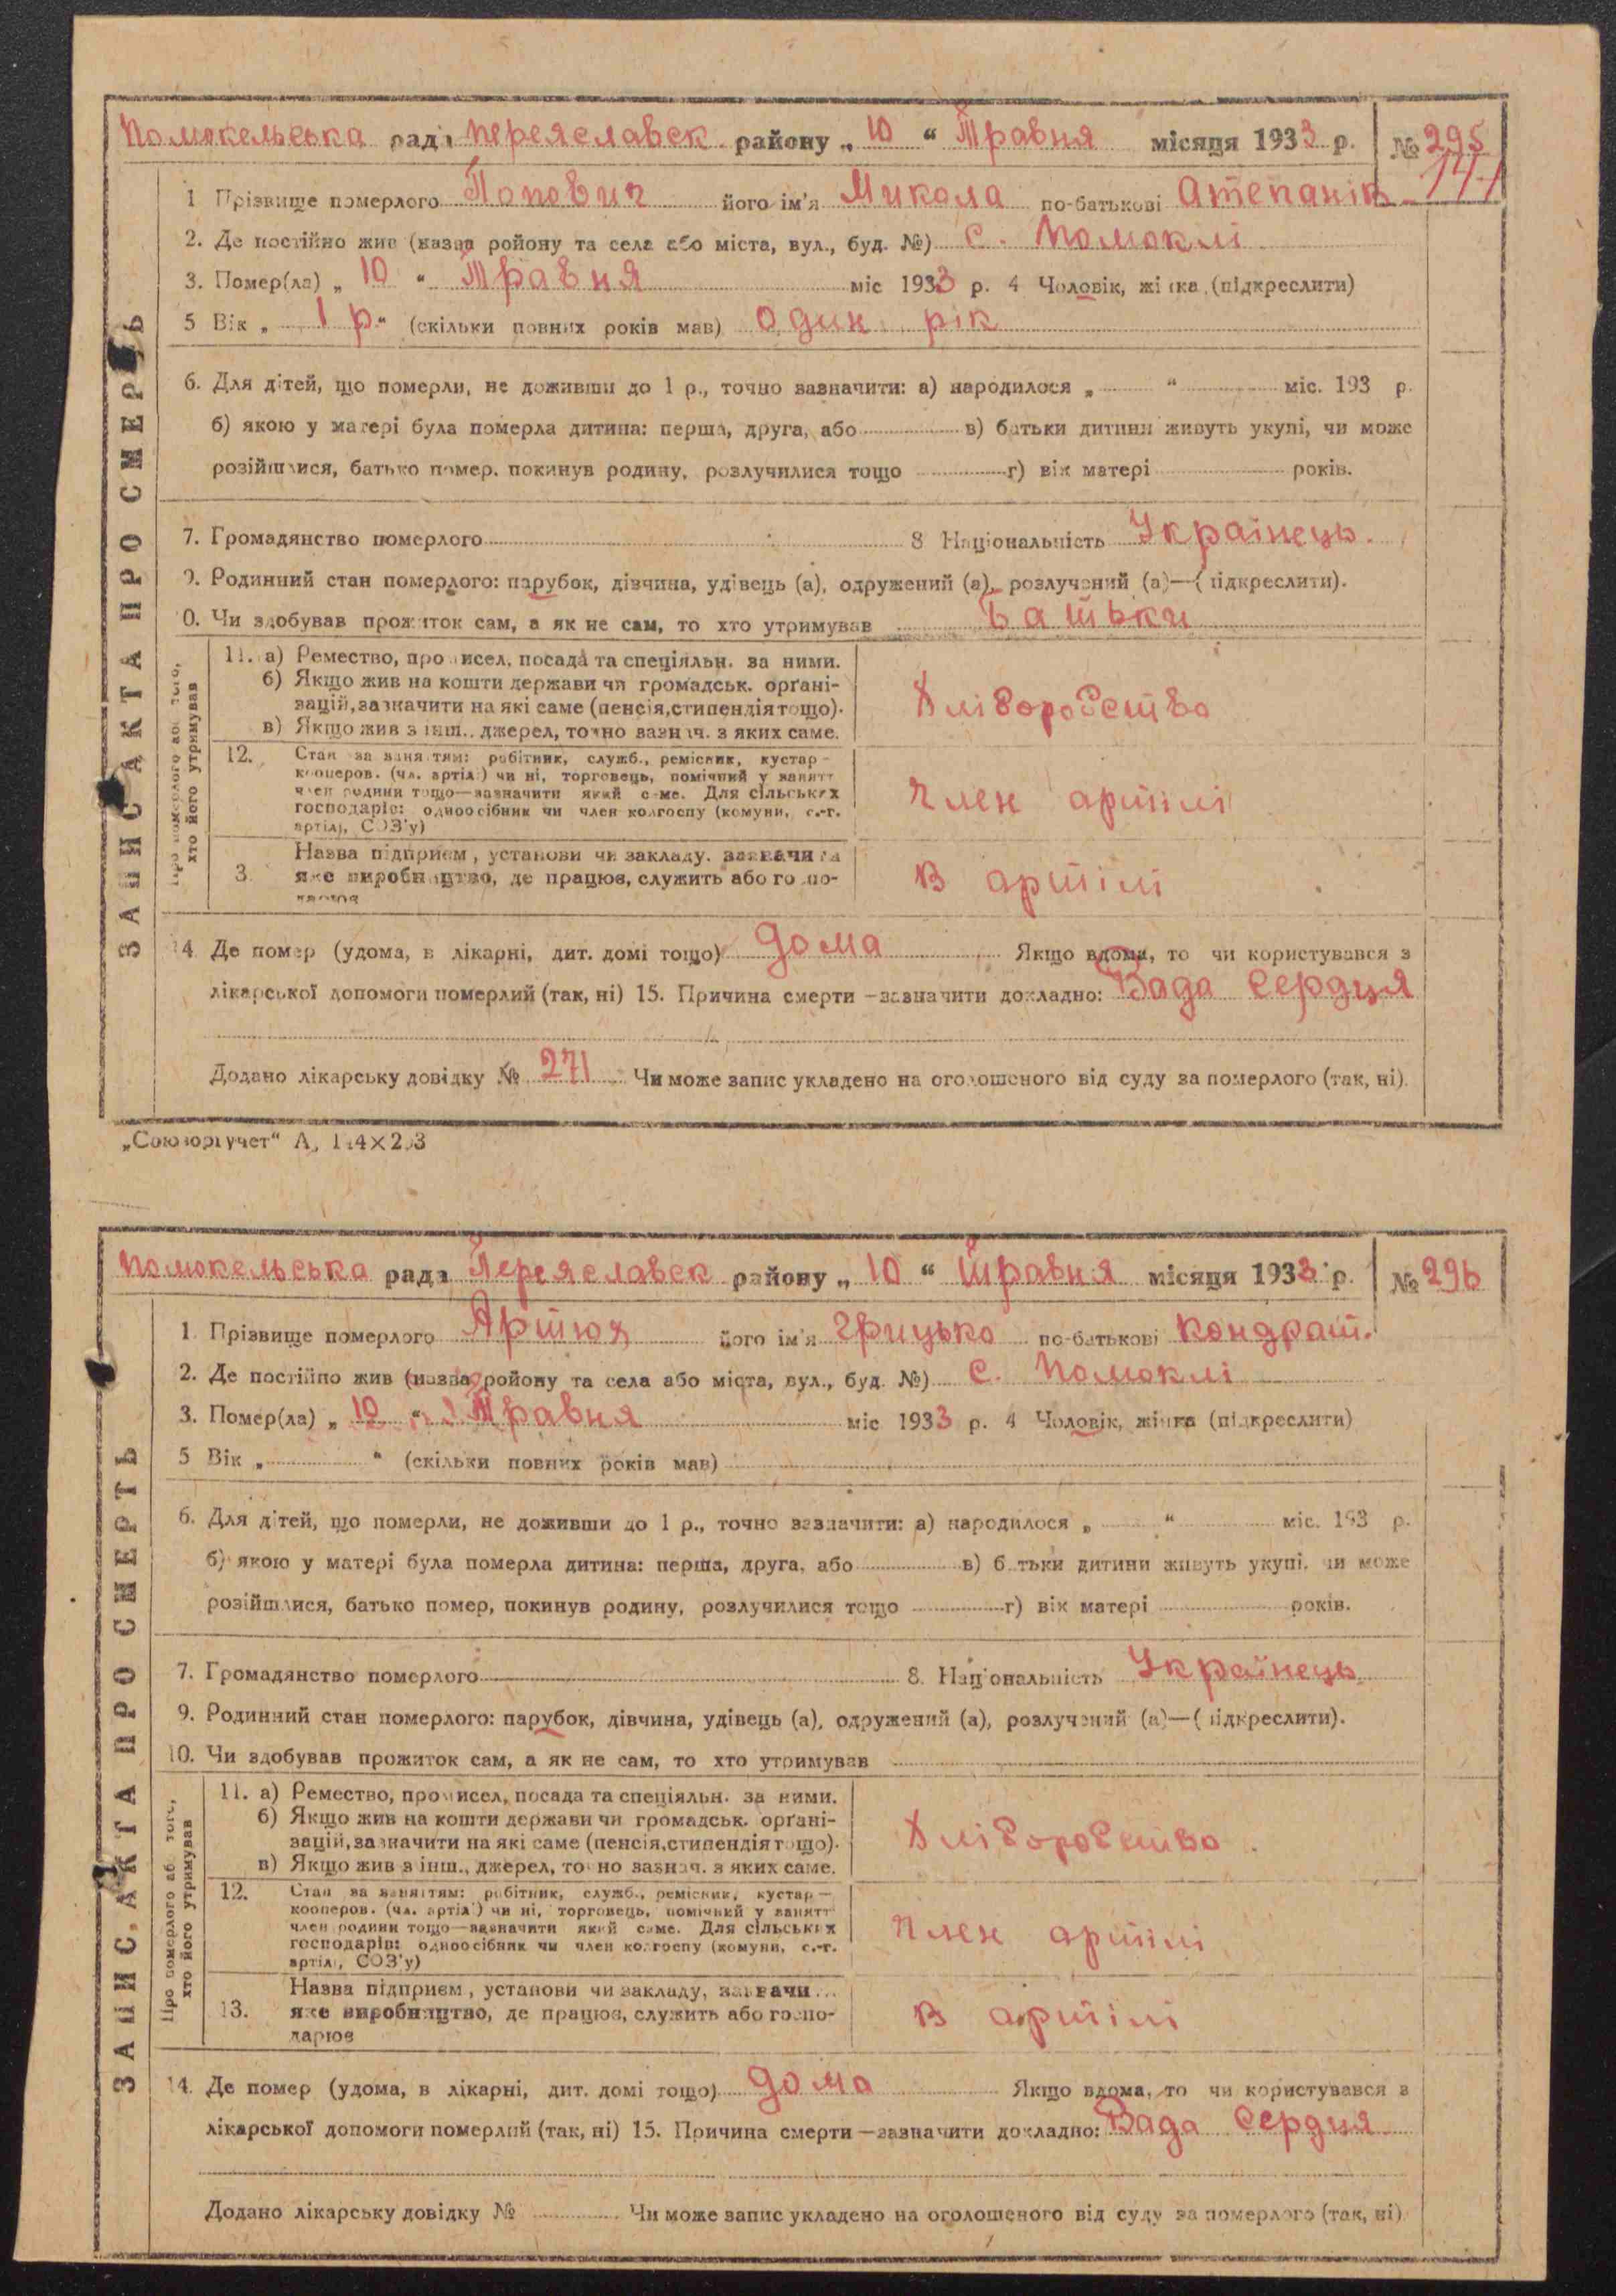 Помокельська рада Переяславск. району „10“ Травня місяця 1933 р. № 295
141
1 Прізвище померлого Попович його ім'я Микола по-батькові Степанів
2. Де постійно жив (назва ройону та села або міста, вул., буд. №) с. Помоклі
3. Помер(ла) „10“ Травня міс 1933 р. 4 Чоловік, жінка (підкреслити)
5 Вік „1 р.“ (скільки повних років мав) один рік
6. Для дітей, що померли, не доживши до 1 р., точно зазначити: а) народилося „ “ міс. 193 р.
б) якою у матері була померла дитина: перша, друга, або в) батьки дитини живуть укупі, чи може
розійшлися, батько помер, покинув родину, розлучилися тощо г) вік матері років.
7. Громадянство померлого 8 Національність Українець.
9. Родинний стан померлого: парубок, дівчина, удівець (а), одружений (а), розлучений (а)—(підкреслити).
10. Чи здобував прожиток сам, а як не сам, то хто утримував Батьки
ЗАПИС АКТА ПРО СМЕРТЬ
Про померлого або того, хто його утримував
11. а) Ремество, промисел, посада та спеціяльн. за ними.
б) Якщо жив на кошти держави чи громадськ. орґані-
зацій, зазначити на які саме (пенсія, стипендія тощо).
в) Якщо жив з інш., джерел, точно зазнач. з яких саме.
Хліборобство
12. Стан за заняттям: робітник, служб., ремісник, кустар—
кооперов. (чл. артілі) чи ні, торговець, помічний у занятт
член родини тощо—зазначити який саме. Для сільських
господарів: одноосібник чи член колгоспу (комуни, с.-г.
артілі, СОЗ'у)
член артілі
13. Назва підприєм, установи чи закладу, зазначити
яке виробництво, де працює, служить або госпо-
дарює
в артілі
14. Де помер (удома, в лікарні, дит. домі тощо) дома Якщо вдома, то чи користувався з
лікарської допомоги померлий (так, ні) 15. Причина смерти—зазначити докладно: Вада сердця
Додано лікарську довідку № 271 Чи може запис укладено на оголошеного від суду за померлого (так, ні).
„Союзоргучет“
Помокельська рада Переяславск району „10“ травня місяця 1933 р. № 296
1. Прізвище померлого Артюх його ім'я Грицько по-батькові Кондрат.
2. Де постійно жив (назва ройону та села або міста, вул., буд. №) с. Помоклі
3. Помер(ла) „10“ Травня міс 1933 р. 4 Чоловік, жінка (підкреслити)
5 Вік „ “ (скільки повних років мав)
6. Для дітей, що померли, не доживши до 1 р., точно зазначити: а) народилося „ “ міс. 193 р.
б) якою у матері була померла дитина: перша, друга, або в) батьки дитини живуть укупі, чи може
розійшлися, батько помер, покинув родину, розлучилися тощо г) вік матері років.
7. Громадянство померлого 8. Національність Українець
9. Родинний стан померлого: парубок, дівчина, удівець (а), одружений (а), розлучений (а)—(підкреслити).
10. Чи здобував прожиток сам, а як не сам, то хто утримував
ЗАПИС АКТА ПРО СМЕРТЬ
Про померлого або того, хто його утримував
11. а) Ремество, промисел, посада та спеціяльн. за ними.
б) Якщо жив на кошти держави чи громадськ. орґані-
зацій, зазначити на які саме (пенсія, стипендія тощо).
в) Якщо жив з інш., джерел, точно зазнач. з яких саме.
Хліборобство
12. Стан за заняттям: робітник, служб., ремісник, кустар—
кооперов. (чл. артілі) чи ні, торговець, помічний у занятт
член родини тощо—зазначити який саме. Для сільських
господарів: одноосібник чи член колгоспу (комуни, с.-г.
артілі, СОЗ'у)
член артілі
13. Назва підприєм, установи чи закладу, зазначи
яке виробництво, де працює, служить або госпо-
дарює
в артілі
14. Де помер (удома, в лікарні, дит. домі тощо) дома Якщо вдома, то чи користувався з
лікарської допомоги померлий (так, ні) 15. Причина смерти—зазначити докладно: Вада сердця
Додано лікарську довідку № Чи може запис укладено на оголошеного від суду за померлого (так, ні)